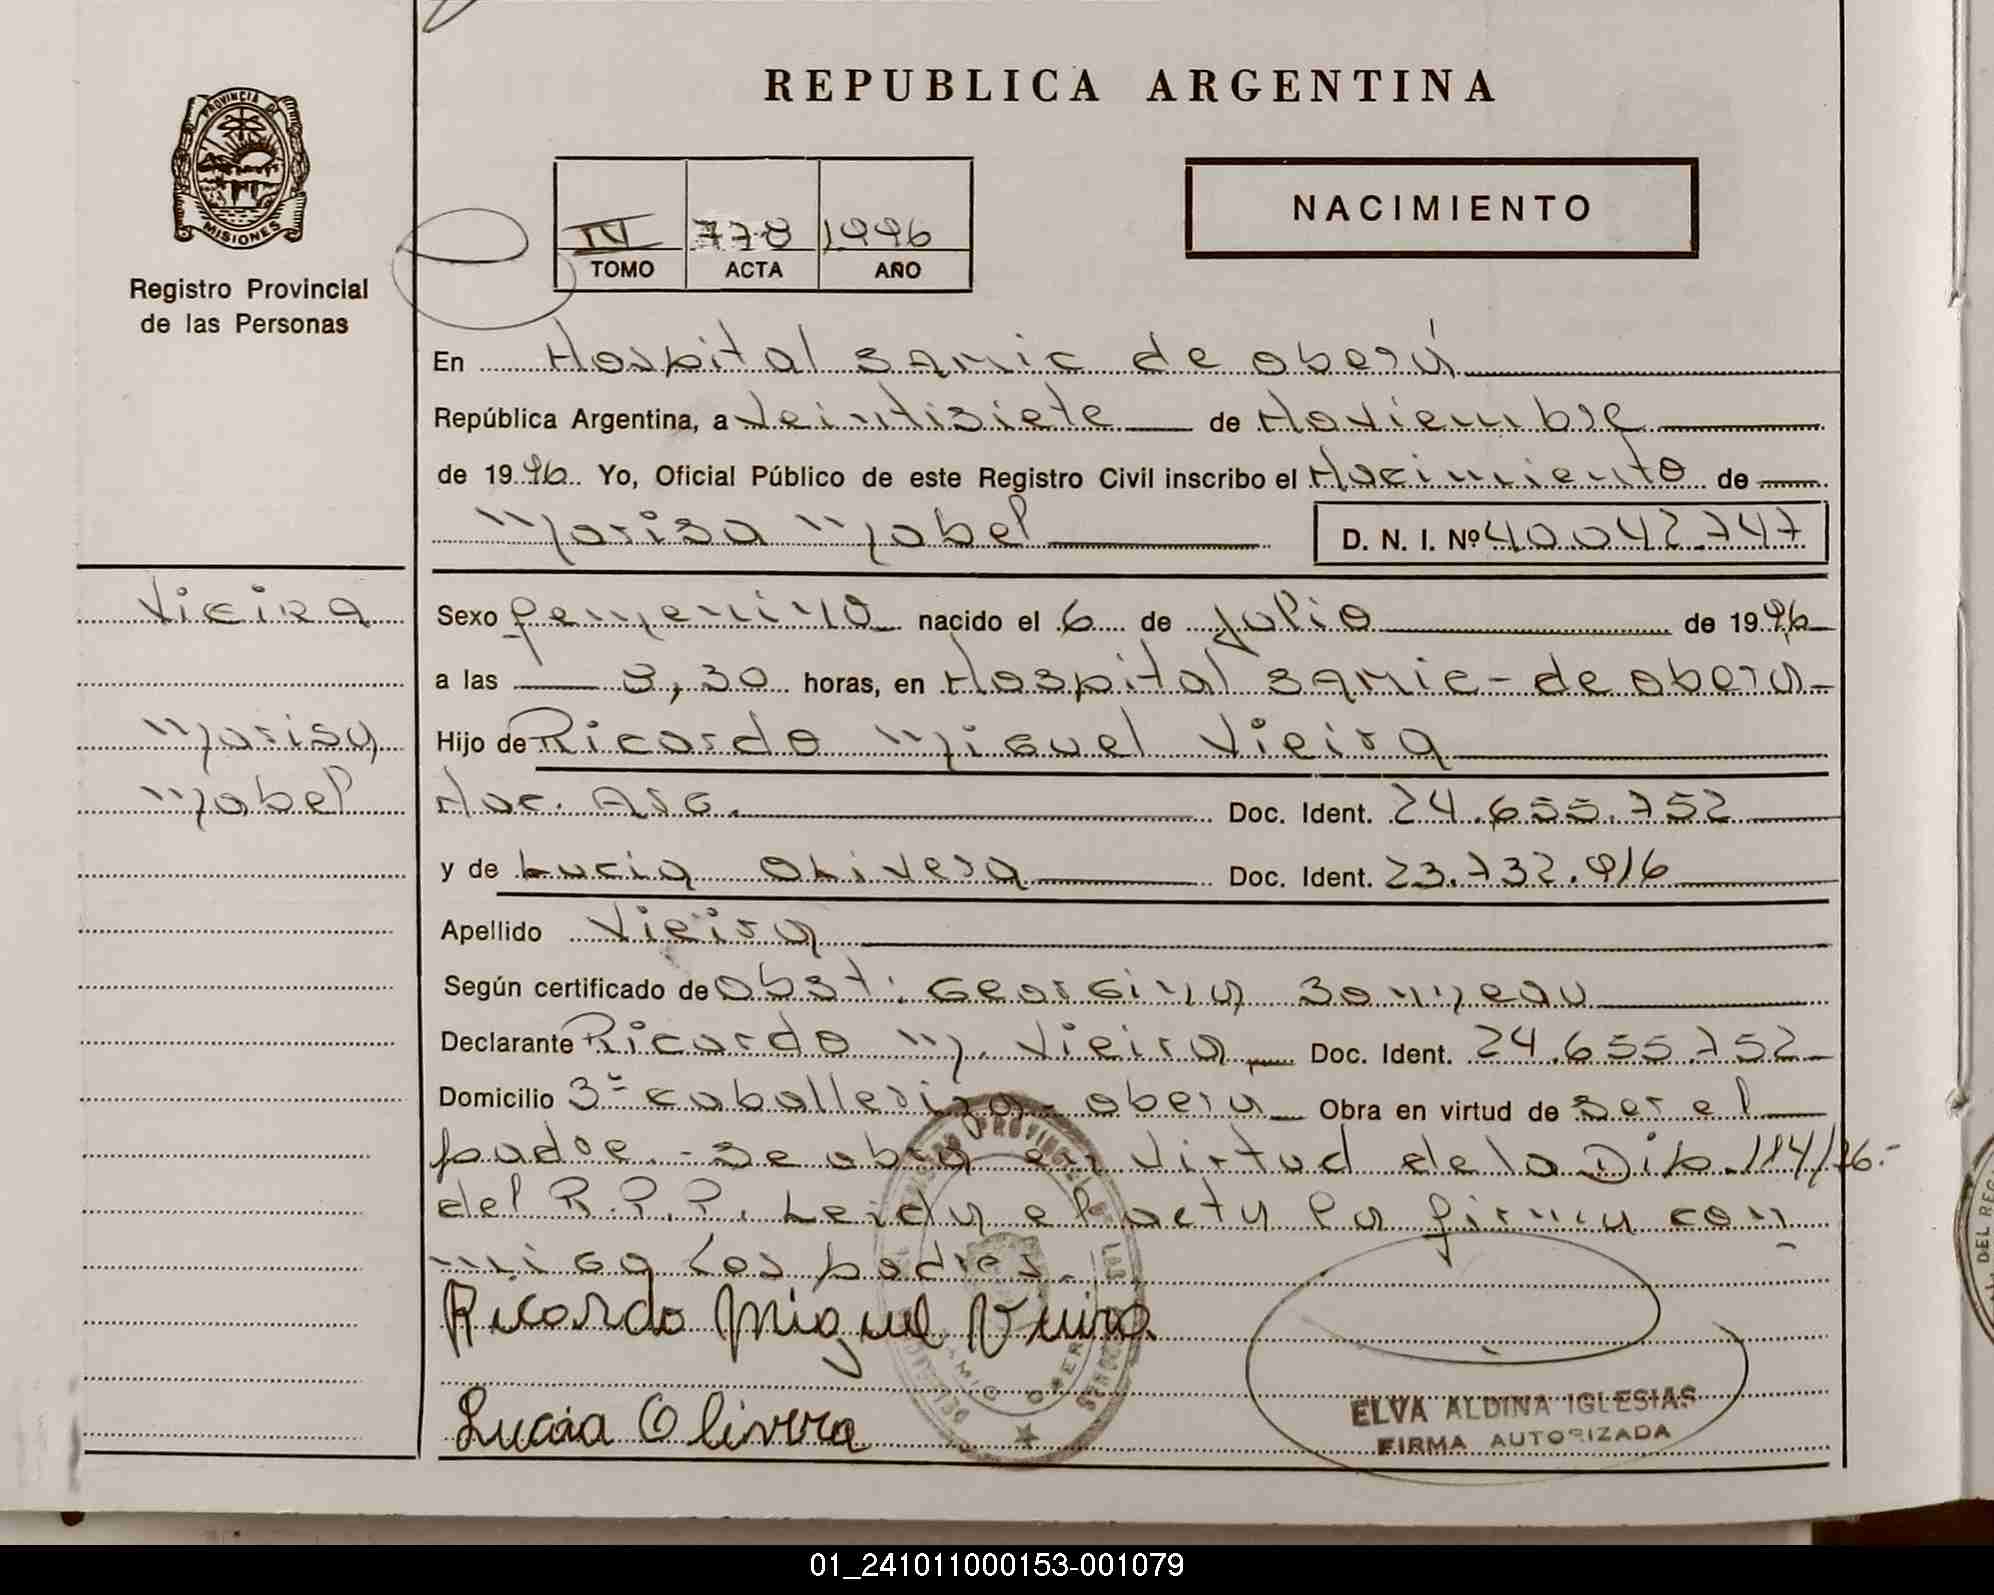 REPUBLICA ARGENTINA
PROVINCIA D
MISIONES
Registro Provincial
de las Personas
IV 778 1996
TOMO ACTA AÑO
NACIMIENTO
En Hospital Samic de Oberá
República Argentina, a Veintisiete de Noviembre
de 1996 Yo, Oficial Público de este Registro Civil inscribo el Nacimiento de
Marisa Mabel D. N. I. Nº 40.042.747
Vieira
Marisa
Mabel
Sexo femenino nacido el 6 de Julio de 1996
a las 3,30 horas, en Hospital Samic - de Oberá -
Hijo de Ricardo Miguel Vieira
Nac. Arg. Doc. Ident. 24.655.752
y de Lucia Olivera Doc. Ident. 23.732.916
Apellido Vieira
Según certificado de Obst: Georgina
Declarante Ricardo M. Vieira Doc. Ident. 24.655.752
Domicilio 3º Caballeriza - Obera Obra en virtud de ser el
padre. - Se obra en virtud de la Dip. 114/76.-
del R.P.P. Leida el acta la firma con
migo los padres.
Ricardo Miguel Vieira
Lucia Olivera
ELVA ALDINA IGLESIAS
FIRMA AUTORIZADA
DEL REG
01_241011000153-001079